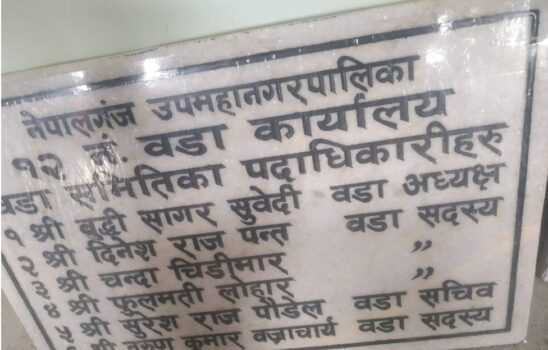 नेपालगंज उपमहानगरपालिका
१२ नं. वडा कार्यालय
वडा समितिका पदाधिकारीहरु
१ श्री बुद्धी सागर सुवेदी वडा अध्यक्ष
२ श्री दिनेश राज पन्त वडा सदस्य
३ श्री चन्दा चिडीमार ,,
४ श्री फुलमती लोहार ,,
५ श्री सुरेश राज पौडेल वडा सचिव
श्री कुमार बज्राचार्य वडा सदस्य